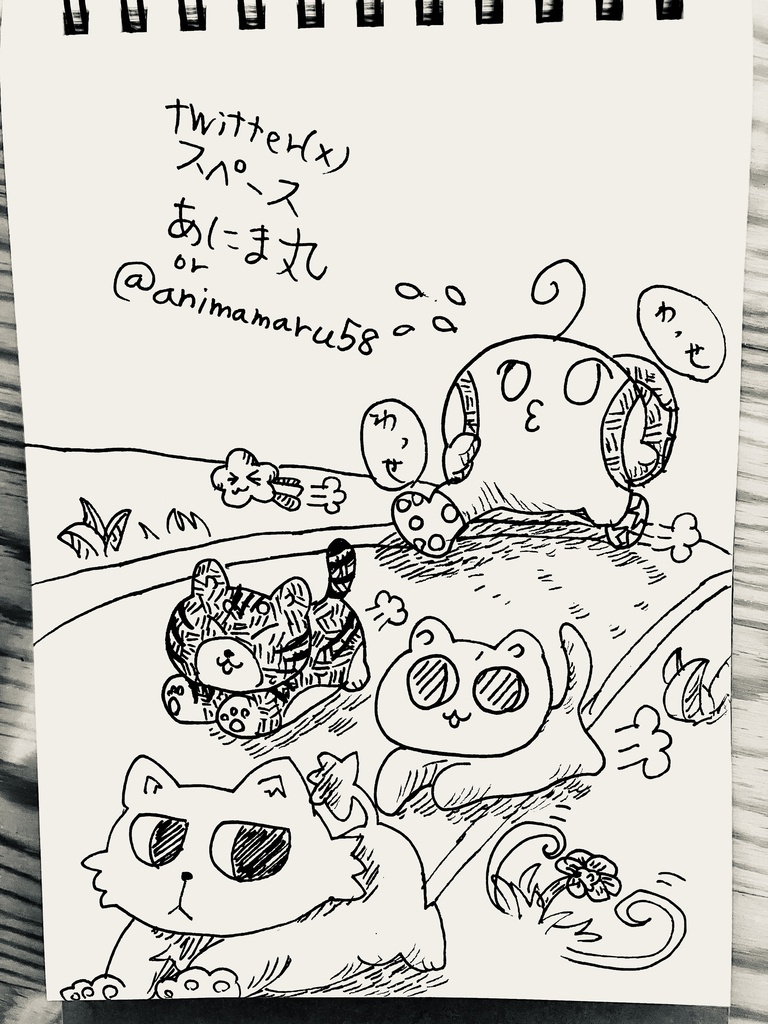 twitter(x)
スペース
あにま丸
or
@animamaru58
わっせ
わっせ